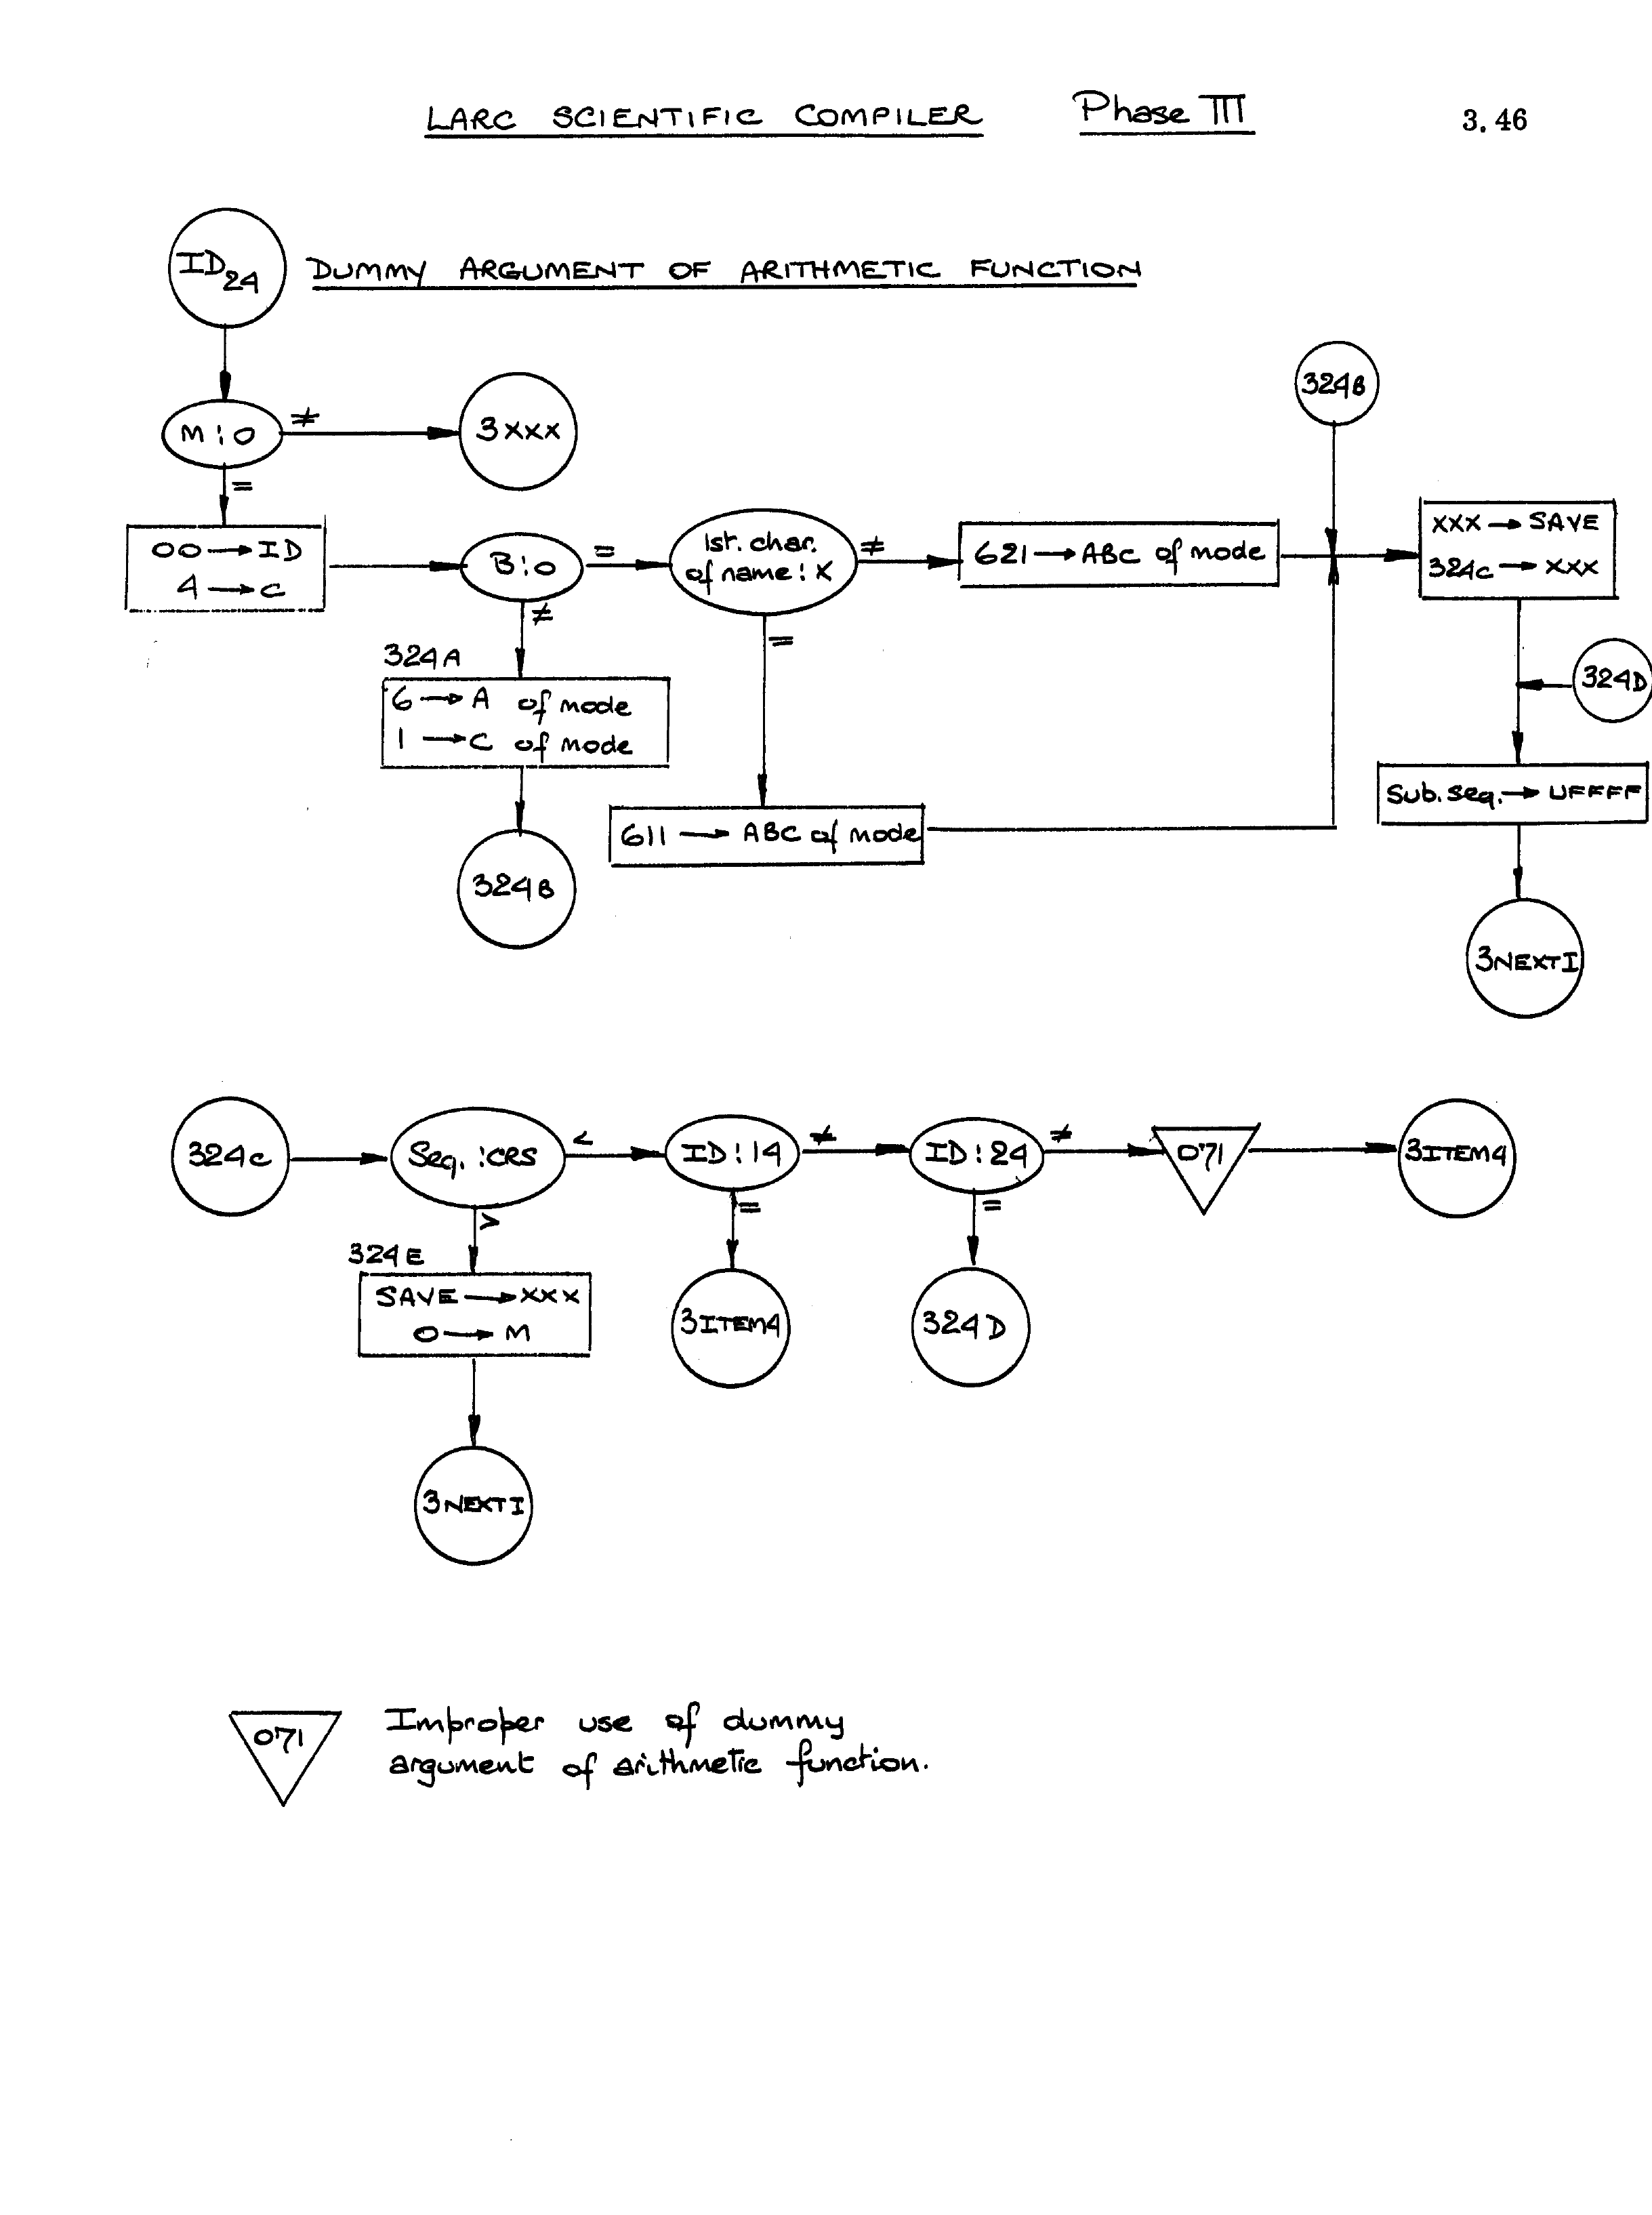 LARC SCIENTIFIC COMPILER Phase III 3.46
ID24 DUMMY ARGUMENT OF ARITHMETIC FUNCTION
324B
M:0 ≠ 3XXX
=
00→ID
4→C
B:0 = 1st. char. of name:X ≠ 621→ABC of mode
XXX→SAVE
324C→XXX
≠
=
324A
6→A of mode
1→C of mode
324D
Sub. seq.→UFFFF
611→ABC of mode
324B
3NEXTI
324C Seq.:CRS < ID:14 ≠ ID:24 ≠ 071 3ITEM4
> = =
324E
SAVE→XXX
0→M
3ITEM4 324D
3NEXTI
071 Improper use of dummy
argument of arithmetic function.